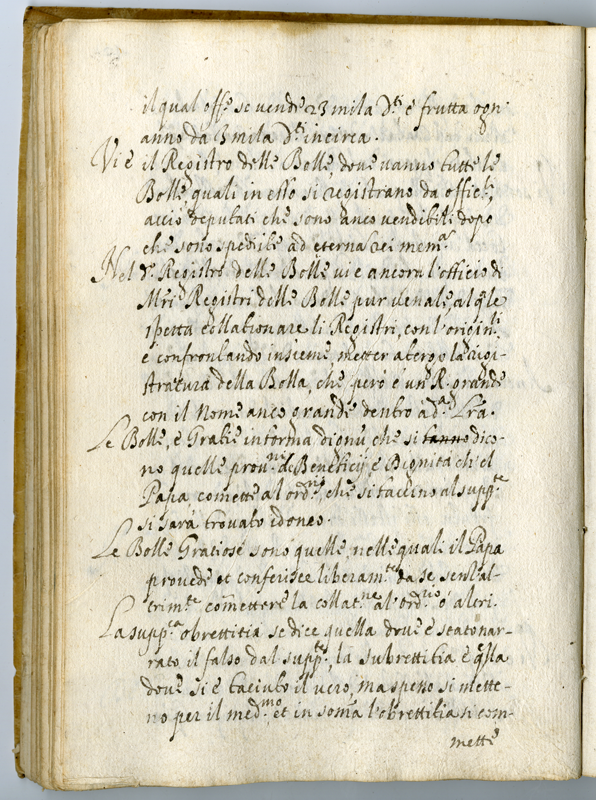 il qual off.º se vende 23 mila D.ti, e frutta ogn'
anno da 3 mila D.ti incirca.
Vi è il Registro delle Bolle, dove vanno tutte le
Bolle, quali in esso si registrano da officii,
acciò deputati che sono anco vendibili dopo
che sono spedite ad eternā rei mem.ā
Nel d.º Registro delle Bolle vi è ancora l'officio di
Mri Registri delle Bolle pur venale, al qle
spetta collationare li Registri, con l'origin.li
e confrontando insieme, metter a tergo la regi-
stratura della Bolla, che però è un R. grande
con il nome anco grande dentro a d.a Lra.
Le Bolle, e Gratie in forma dignū che si fanno dico-
no quelle prov.ni de Beneficij, e Dignità ch'el
Papa comette al ord.rio, che si faccino al supp.te
si sarà trovato idoneo.
Le Bolle Gratiose sono quelle, nelle quali il Papa
provede et conferisce liberam.te da se senz'al-
trim.te comettere la collat.ne al ord.rio ò altri.
La supp.ca obrettitia se dice quella dove è stato nar-
rato il falso dal supp.te, la subrettitia è qlla
dove si è taciuto il vero, ma spesso si mette-
no per il med.mo, et in soma l'obrettitia si com-
mette